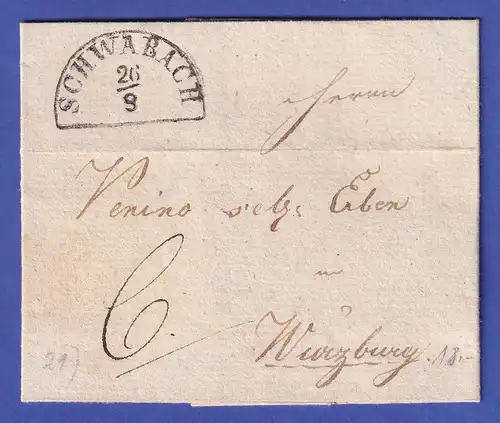 SCHWABACH
26
8
Herrn
Venino selg: Erben
in
6.
Würzburg
.18.-